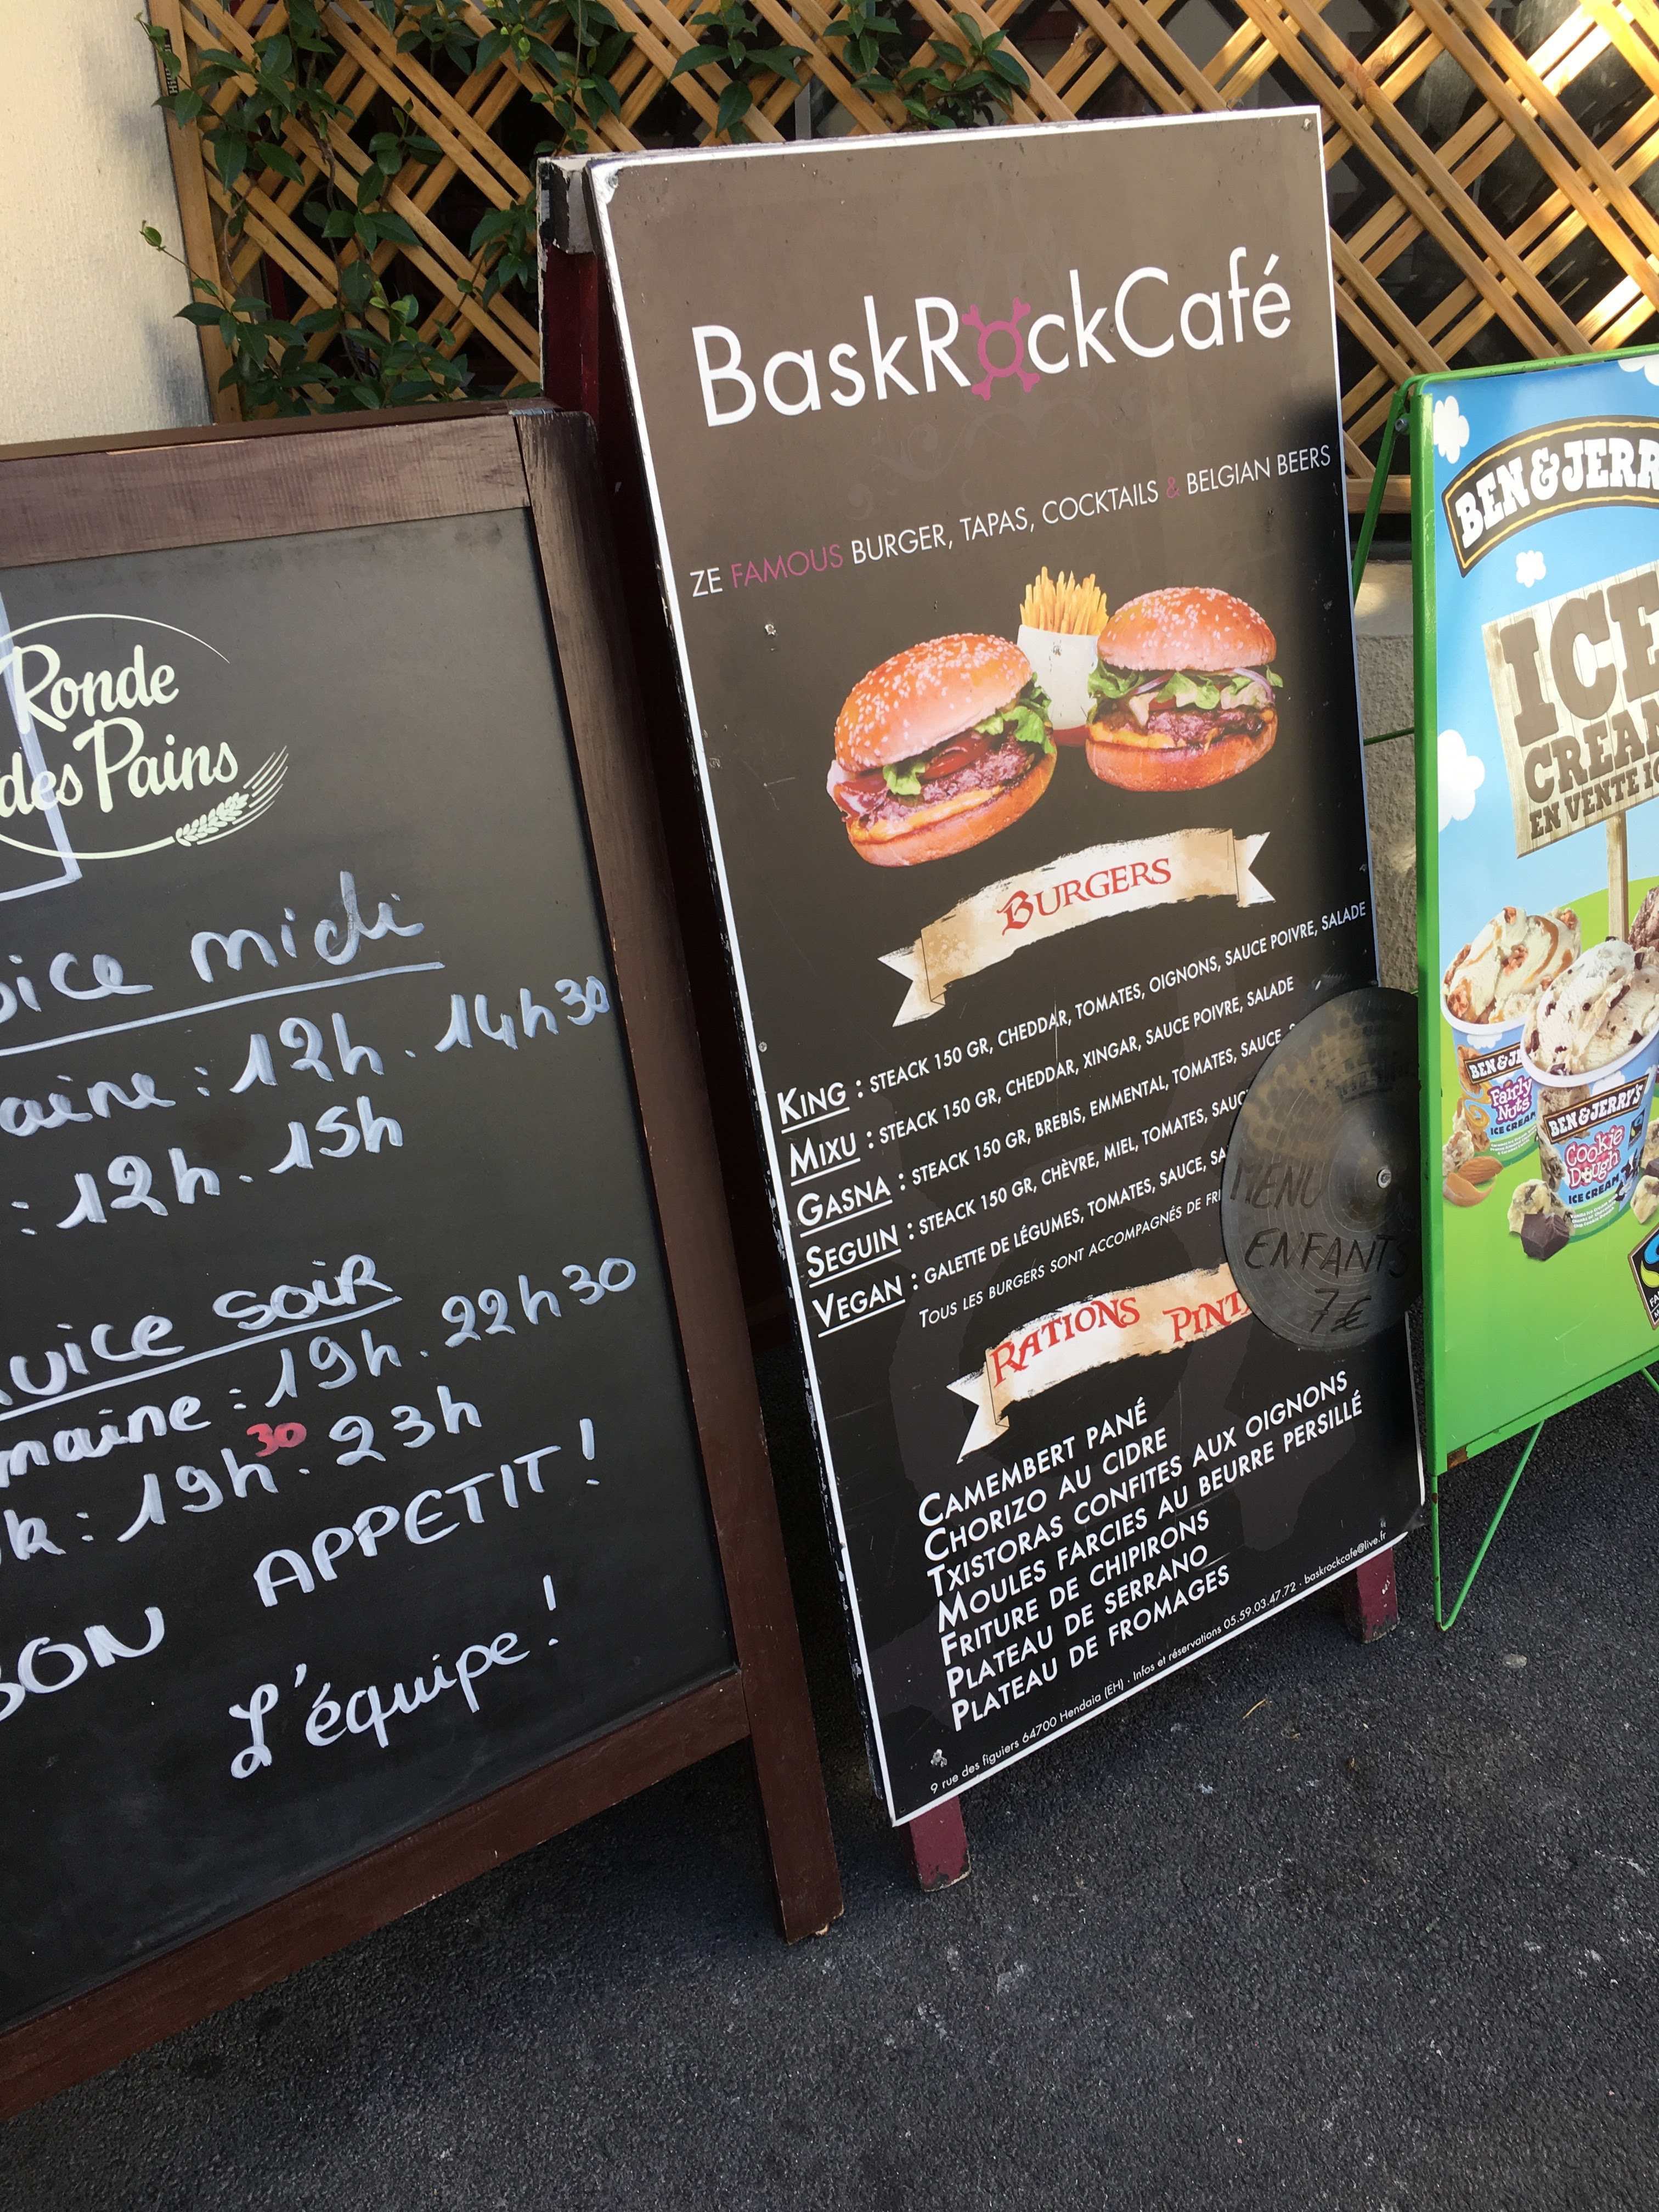 Ronde
des Pains
midi
: 12h. 14h30
: 12h. 15h
SOIR
: 19h. 22h30
: 19h30. 23h
BON APPETIT!
L'équipe!
BaskRockCafé
ZE FAMOUS BURGER, TAPAS, COCKTAILS & BELGIAN BEERS
BURGERS
KING : STEACK 150 GR, CHEDDAR, TOMATES, OIGNONS, SAUCE POIVRE, SALADE
MIXU : STEACK 150 GR, CHEDDAR, XINGAR, SAUCE POIVRE, SALADE
GASNA : STEACK 150 GR, BREBIS, EMMENTAL, TOMATES, SAUCE
SEGUIN : STEACK 150 GR, CHÈVRE, MIEL, TOMATES,
VEGAN : GALETTE DE LÉGUMES, TOMATES, SAUCE,
TOUS LES BURGERS SONT ACCOMPAGNÉS DE
RATIONS
CAMEMBERT PANÉ
CHORIZO AU CIDRE
TXISTORAS CONFITES AUX OIGNONS
MOULES FARCIES AU BEURRE PERSILLÉ
FRITURE DE CHIPIRONS
PLATEAU DE SERRANO
PLATEAU DE FROMAGES
9 rue des figuiers 64700 Hendaia (EH) . Infos et réservations 05.59.03.47.72 . baskrockcafe@live.fr
MENU
ENFANTS
7€
BEN & JERR
ICE
CREAM
EN VENTE
BEN & JE
Fairly
Nuts
ICE CREAM
BEN & JERRY'S
Cookie
Dough
ICE CREAM